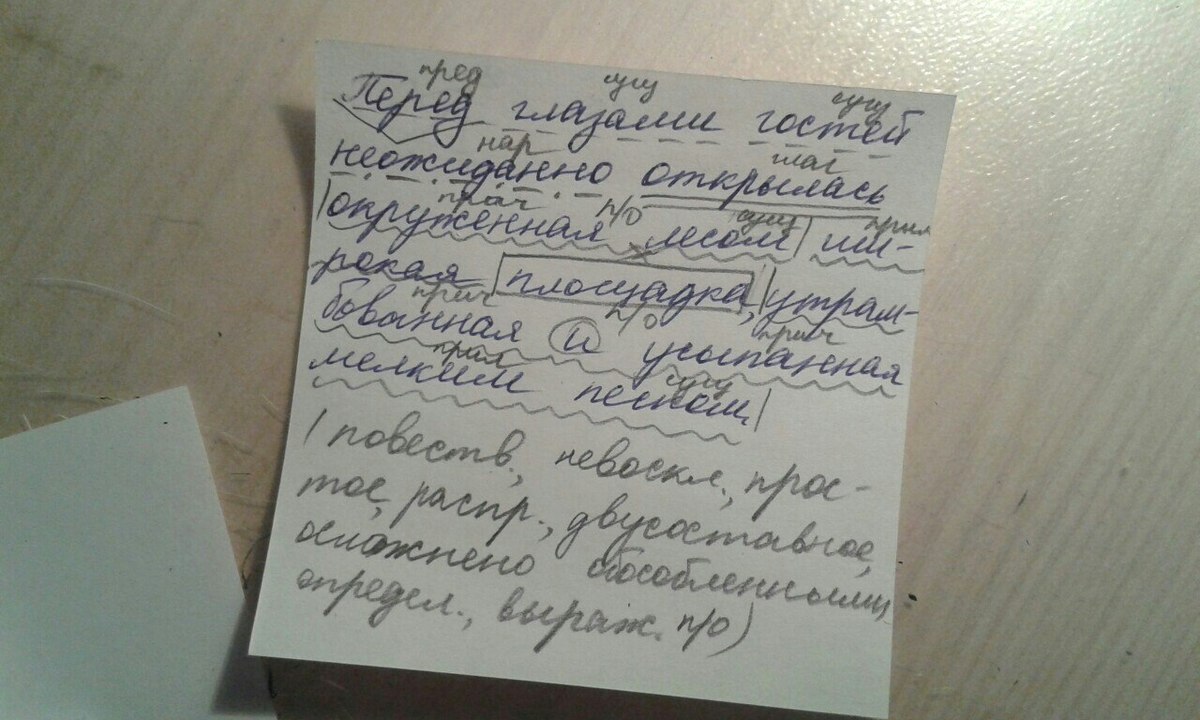 пред сущ сущ
Перед глазами гостей
нар глаг
неожиданно открылась
прич п/о сущ прил
окруженная лесом ши-
рокая площадка, утрам-
прич п/о прич
бованная и усыпанная
прил сущ
мелким песком.
(повеств., невоскл., прос-
тое, распр., двусоставное,
осложнено обособленными
определ., выраж. п/о)